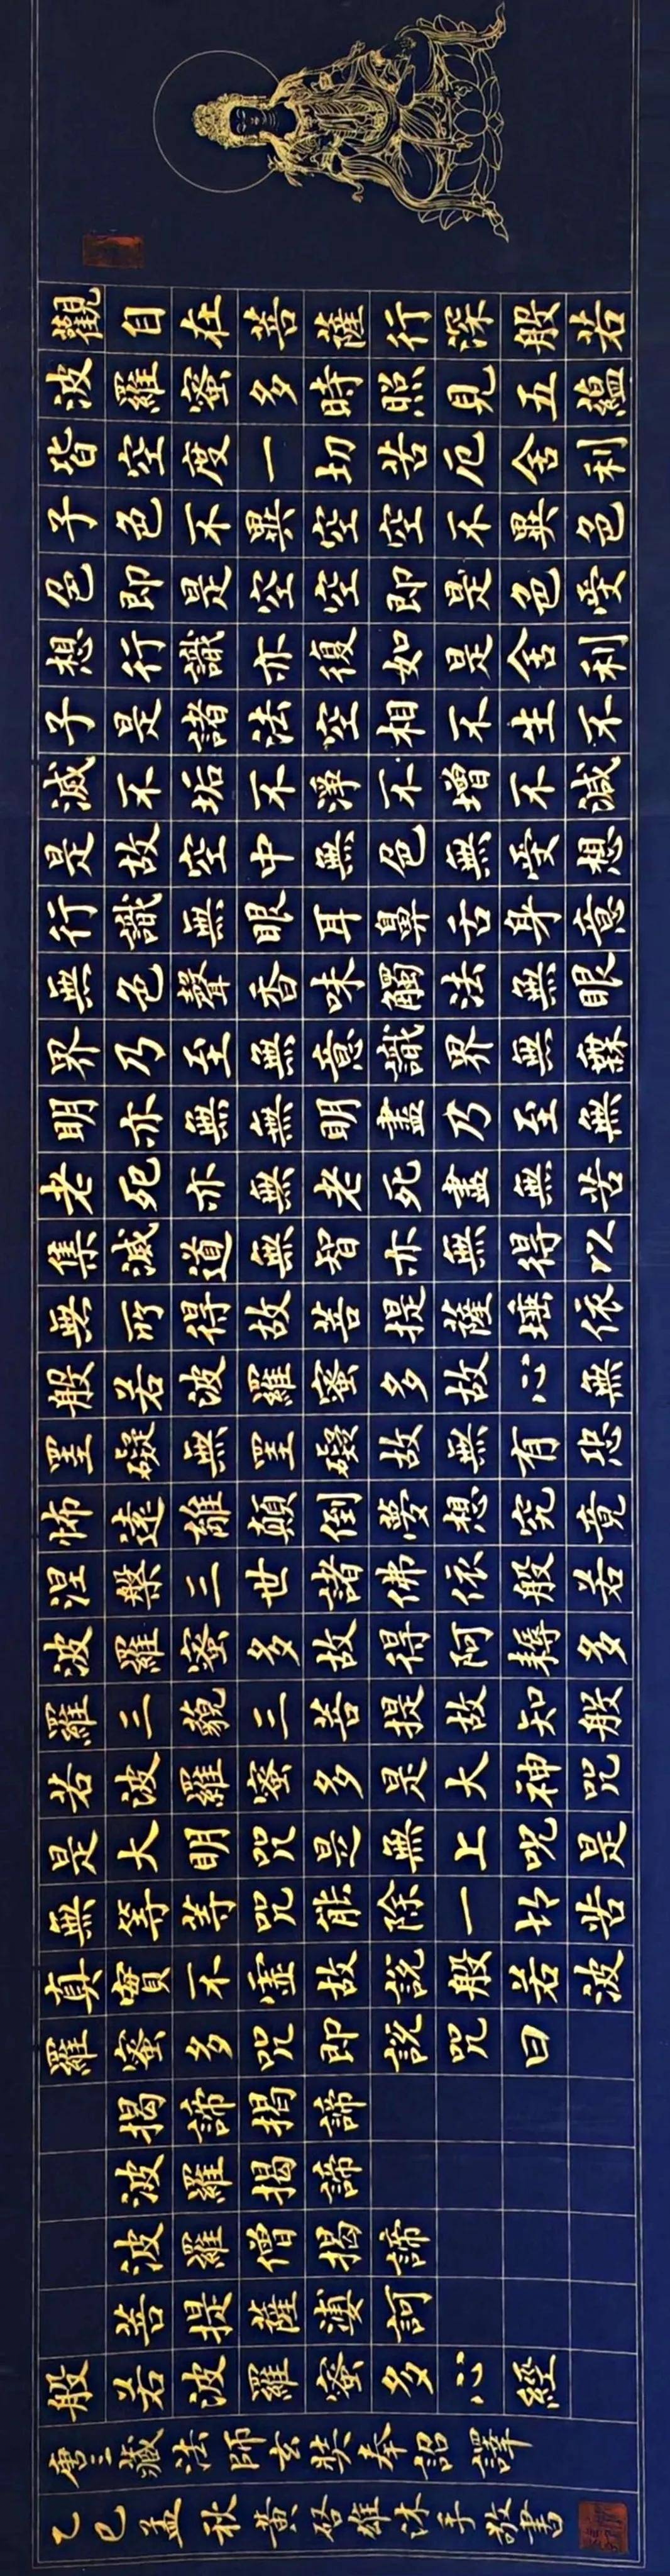 觀自在菩薩行深般若
波羅蜜多時照見五蘊
皆空度一切苦厄舍利
子色不異空空不異色
色即是空空即是色受
想行識亦復如是舍利
子是諸法空相不生不
滅不垢不淨不增不減
是故空中無色無受想
行識無眼耳鼻舌身意
無色聲香味觸法無眼
界乃至無意識界無無
明亦無無明盡乃至無
老死亦無老死盡無苦
集滅道無智亦無得以
無所得故菩提薩埵依
般若波羅蜜多故心無
罣礙無罣礙故無有恐
怖遠離顛倒夢想究竟
涅槃三世諸佛依般若
波羅蜜多故得阿耨多
羅三藐三菩提故知般
若波羅蜜多是大神咒
是大明咒是無上咒是
無等等咒能除一切苦
真實不虛故說般若波
羅蜜多咒即說咒曰
揭諦揭諦
波羅揭諦
波羅僧揭諦
菩提薩婆訶
般若波羅蜜多心經
唐三藏法師玄奘奉詔譯
乙巳孟秋黃雄沐手敬書